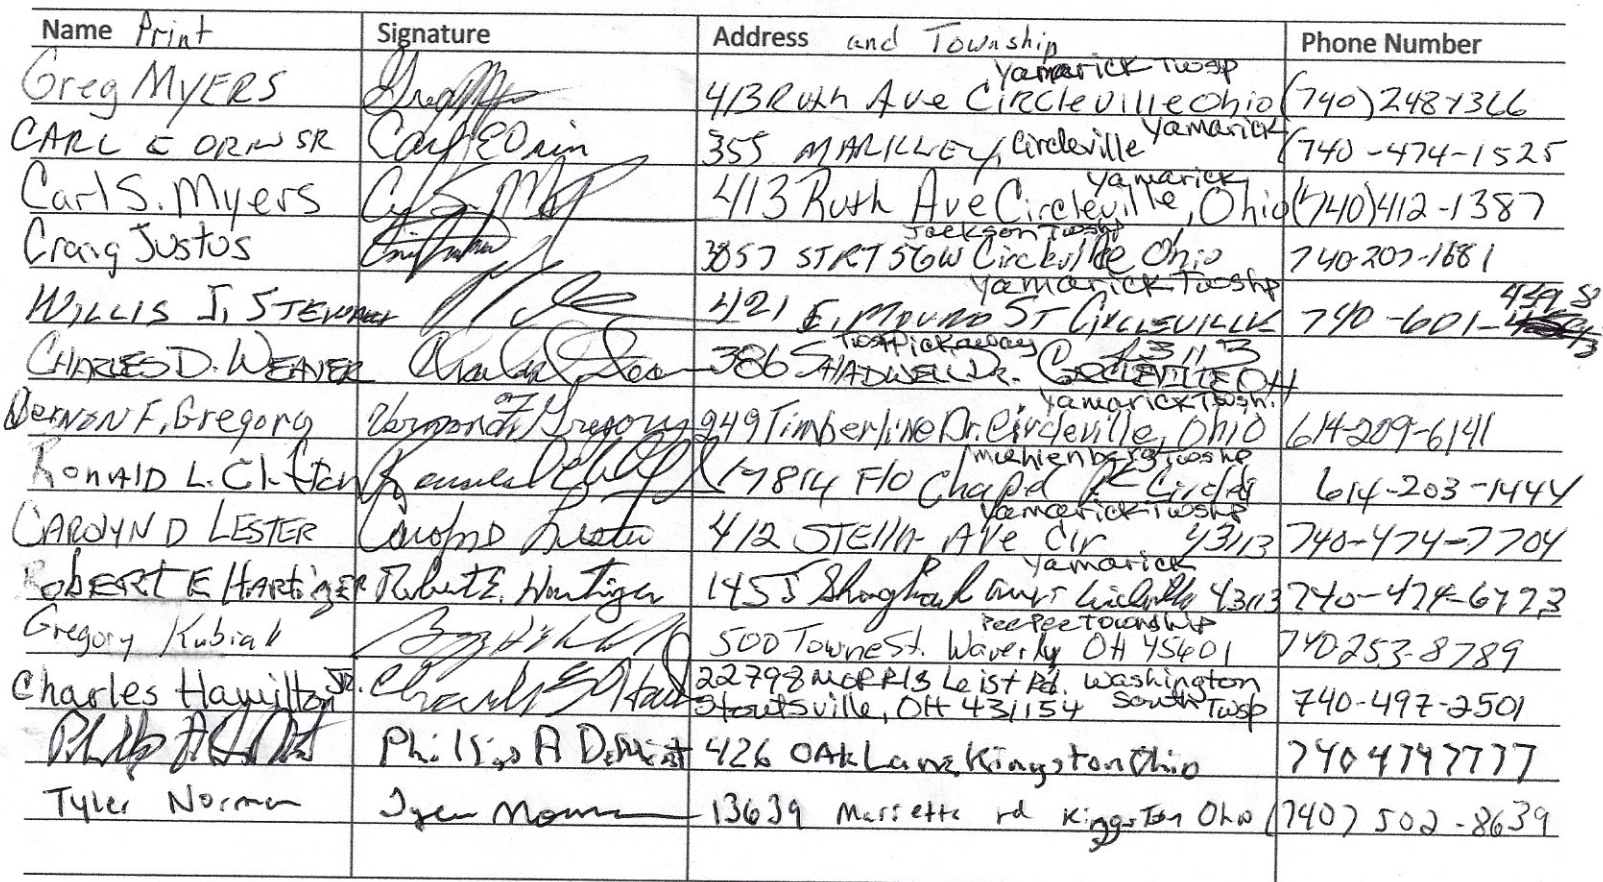 Name Print Signature Address and Township Phone Number
Greg MYERS Greg Myers 413 Ruth Ave Circleville Ohio Yamarick Twsp (740) 248-1366
CARL E ORIN SR Carl E Orin 355 MARKLEY, Circleville Yamarick (740-474-1525
Carl S. Myers 413 Ruth Ave Circleville, Ohio Yamarick (740)412-1387
Craig Justus 3857 ST RT 56W Circleville Ohio Jackson Twshp 740-207-1681
WILLIS J. STEWART 421 E. MOUND ST CIRCLEVILLE Yamarick Twshp 740-601-
CHARLES D. WEAVER 386 SHADWELL Dr. CIRCLEVILLE OH 43113 Twsp Pickaway
Vernon F. Gregory Vernon F. Gregory 949 Timberline Dr. Circleville, Ohio Yamarick Twsh. 614-209-6141
RONALD L. Clifton 19814 Flo Chapel Circle Muhlenberg Twshp 614-203-1444
CAROLYN D LESTER Carolyn D Lester 412 STELLA AVE Cir 43113 Yamarick Twshp 740-474-7704
ROBERT E HARTIGER Robert E. Hartiger 1455 Circleville 43113 Yamarick 740-474-6773
Gregory Kubiak 500 Towne St. Waverly OH 45601 PeePee Township 740 253-8789
Charles Hamilton JR. 22798 MORRIS Leist Rd. Washington
Stoutsville, OH 431154 South Twsp 740-497-2501
Phillip A 426 OAK Lane Kingston Ohio 740 4747777
Tyler Norman Tyler Norman 13639 Marietta rd Kingston Ohio (740) 502-8639